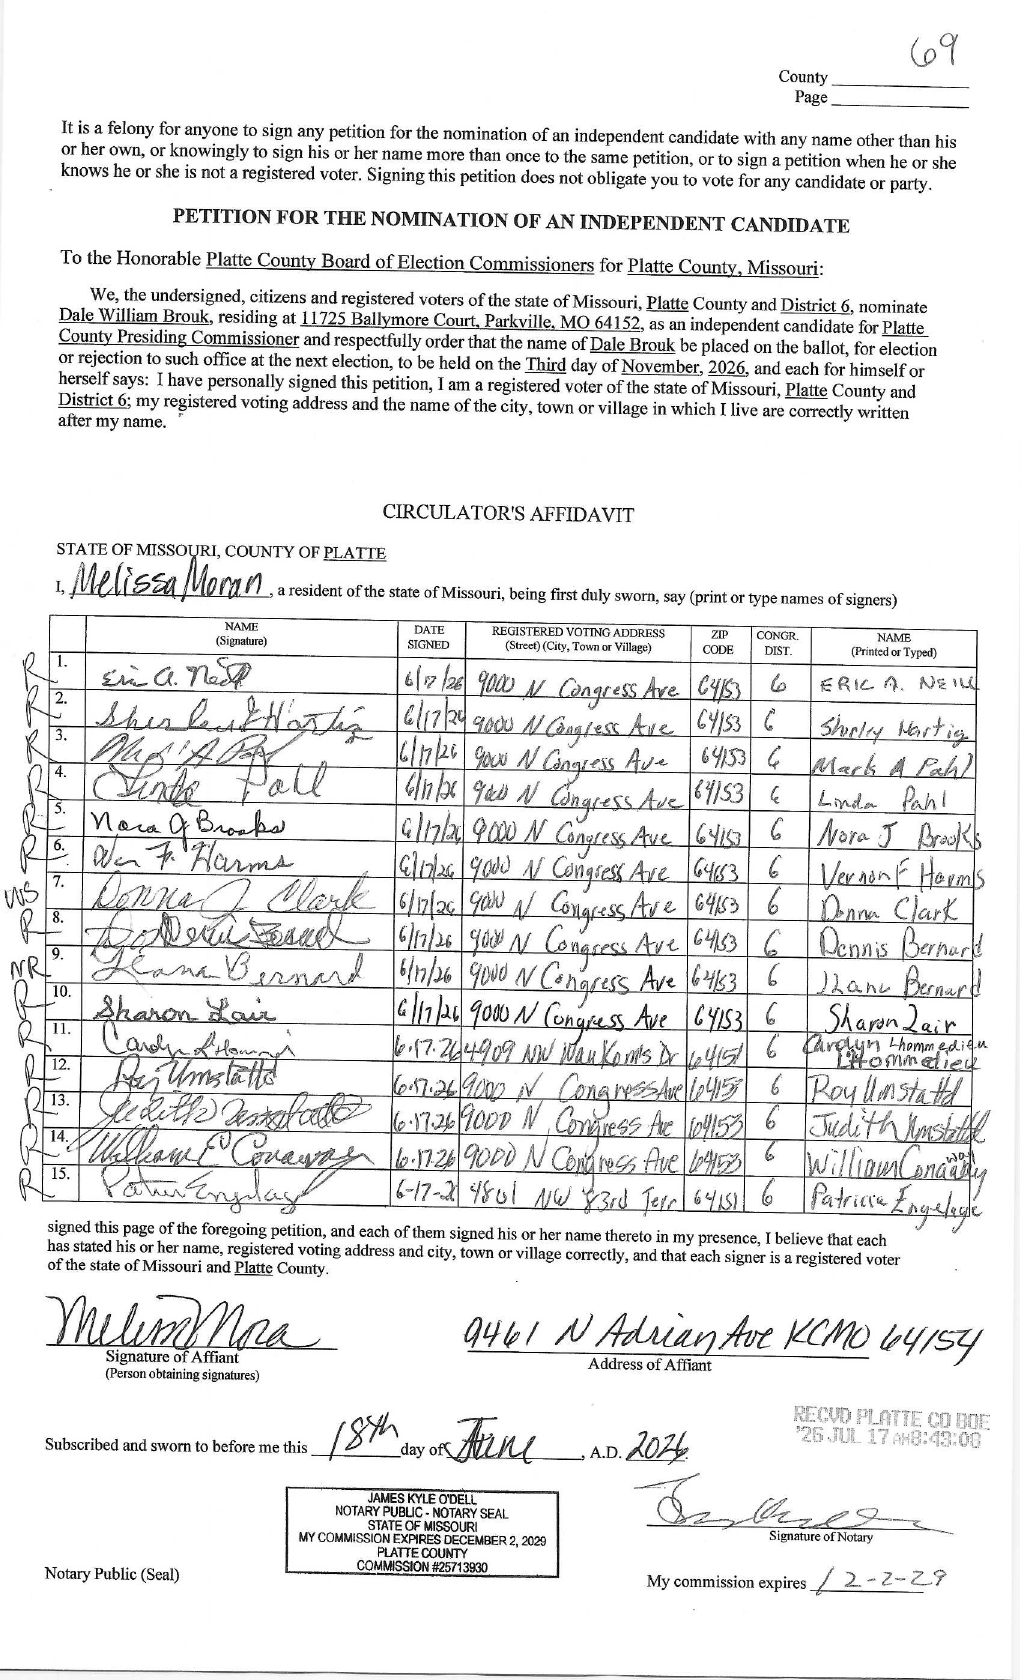 69
County
Page
It is a felony for anyone to sign any petition for the nomination of an independent candidate with any name other than his
or her own, or knowingly to sign his or her name more than once to the same petition, or to sign a petition when he or she
knows he or she is not a registered voter. Signing this petition does not obligate you to vote for any candidate or party.
PETITION FOR THE NOMINATION OF AN INDEPENDENT CANDIDATE
To the Honorable Platte County Board of Election Commissioners for Platte County, Missouri:
We, the undersigned, citizens and registered voters of the state of Missouri, Platte County and District 6, nominate
Dale William Brouk, residing at 11725 Ballymore Court, Parkville, MO 64152, as an independent candidate for Platte
County Presiding Commissioner and respectfully order that the name of Dale Brouk be placed on the ballot, for election
or rejection to such office at the next election, to be held on the Third day of November, 2026, and each for himself or
herself says: I have personally signed this petition, I am a registered voter of the state of Missouri, Platte County and
District 6; my registered voting address and the name of the city, town or village in which I live are correctly written
after my name.
CIRCULATOR'S AFFIDAVIT
STATE OF MISSOURI, COUNTY OF PLATTE
I, Melissa Moran, a resident of the state of Missouri, being first duly sworn, say (print or type names of signers)
NAME (Signature) DATE SIGNED REGISTERED VOTING ADDRESS (Street) (City, Town or Village) ZIP CODE CONGR. DIST. NAME (Printed or Typed)
R 1. Eric A. Neill 6/17/26 9000 N Congress Ave 64153 6 ERIC A. NEILL
R 2. Shirley Hartig 6/17/26 9000 N Congress Ave 64153 6 Shirley Hartig
R 3. 6/17/26 9000 N Congress Ave 64153 6 Mark A Pahl
R 4. Linda Pahl 6/17/26 9000 N Congress Ave 64153 6 Linda Pahl
R 5. Nora J Brooks 6/17/26 9000 N Congress Ave 64153 6 Nora J Brooks
R 6. Ver F. Harms 6/17/26 9000 N Congress Ave 64153 6 Vernon F Harms
WS 7. Donna J. Clark 6/17/26 9000 N Congress Ave 64153 6 Donna Clark
R 8. 6/17/26 9000 N Congress Ave 64153 6 Dennis Bernard
NR 9. Bernard 6/17/26 9000 N Congress Ave 64153 6 Bernard
R 10. Sharon Lair 6/17/26 9000 N Congress Ave 64153 6 Sharon Lair
R 11. Carolyn L'Hommedieu 6-17-26 4909 NW Waukomis Dr 64151 6 Carolyn Lhommedieu L'Hommedieu
R 12. Roy Umstattd 6-17-26 9000 N Congress Ave 64153 6 Roy Umstattd
R 13. Judith Umstattd 6-17-26 9000 N. Congress Ave 64153 6 Judith Umstattd
R 14. William E Conaway 6-17-26 9000 N Congress Ave 64153 6 William Conaway
R 15. Patricia Engelage 6-17-2 4801 NW 83rd Terr 64151 6 Patricia Engelage
signed this page of the foregoing petition, and each of them signed his or her name thereto in my presence, I believe that each
has stated his or her name, registered voting address and city, town or village correctly, and that each signer is a registered voter
of the state of Missouri and Platte County.
9461 N Adrian Ave KCMO 64154
Signature of Affiant
Address of Affiant
(Person obtaining signatures)
RECVD PLATTE CO BOE
'26 JUL 17 AM8:43:08
Subscribed and sworn to before me this 18th day of June, A.D. 2026.
JAMES KYLE O'DELL
NOTARY PUBLIC - NOTARY SEAL
STATE OF MISSOURI
MY COMMISSION EXPIRES DECEMBER 2, 2029
PLATTE COUNTY
COMMISSION #25713930
Signature of Notary
Notary Public (Seal)
My commission expires 12-2-29